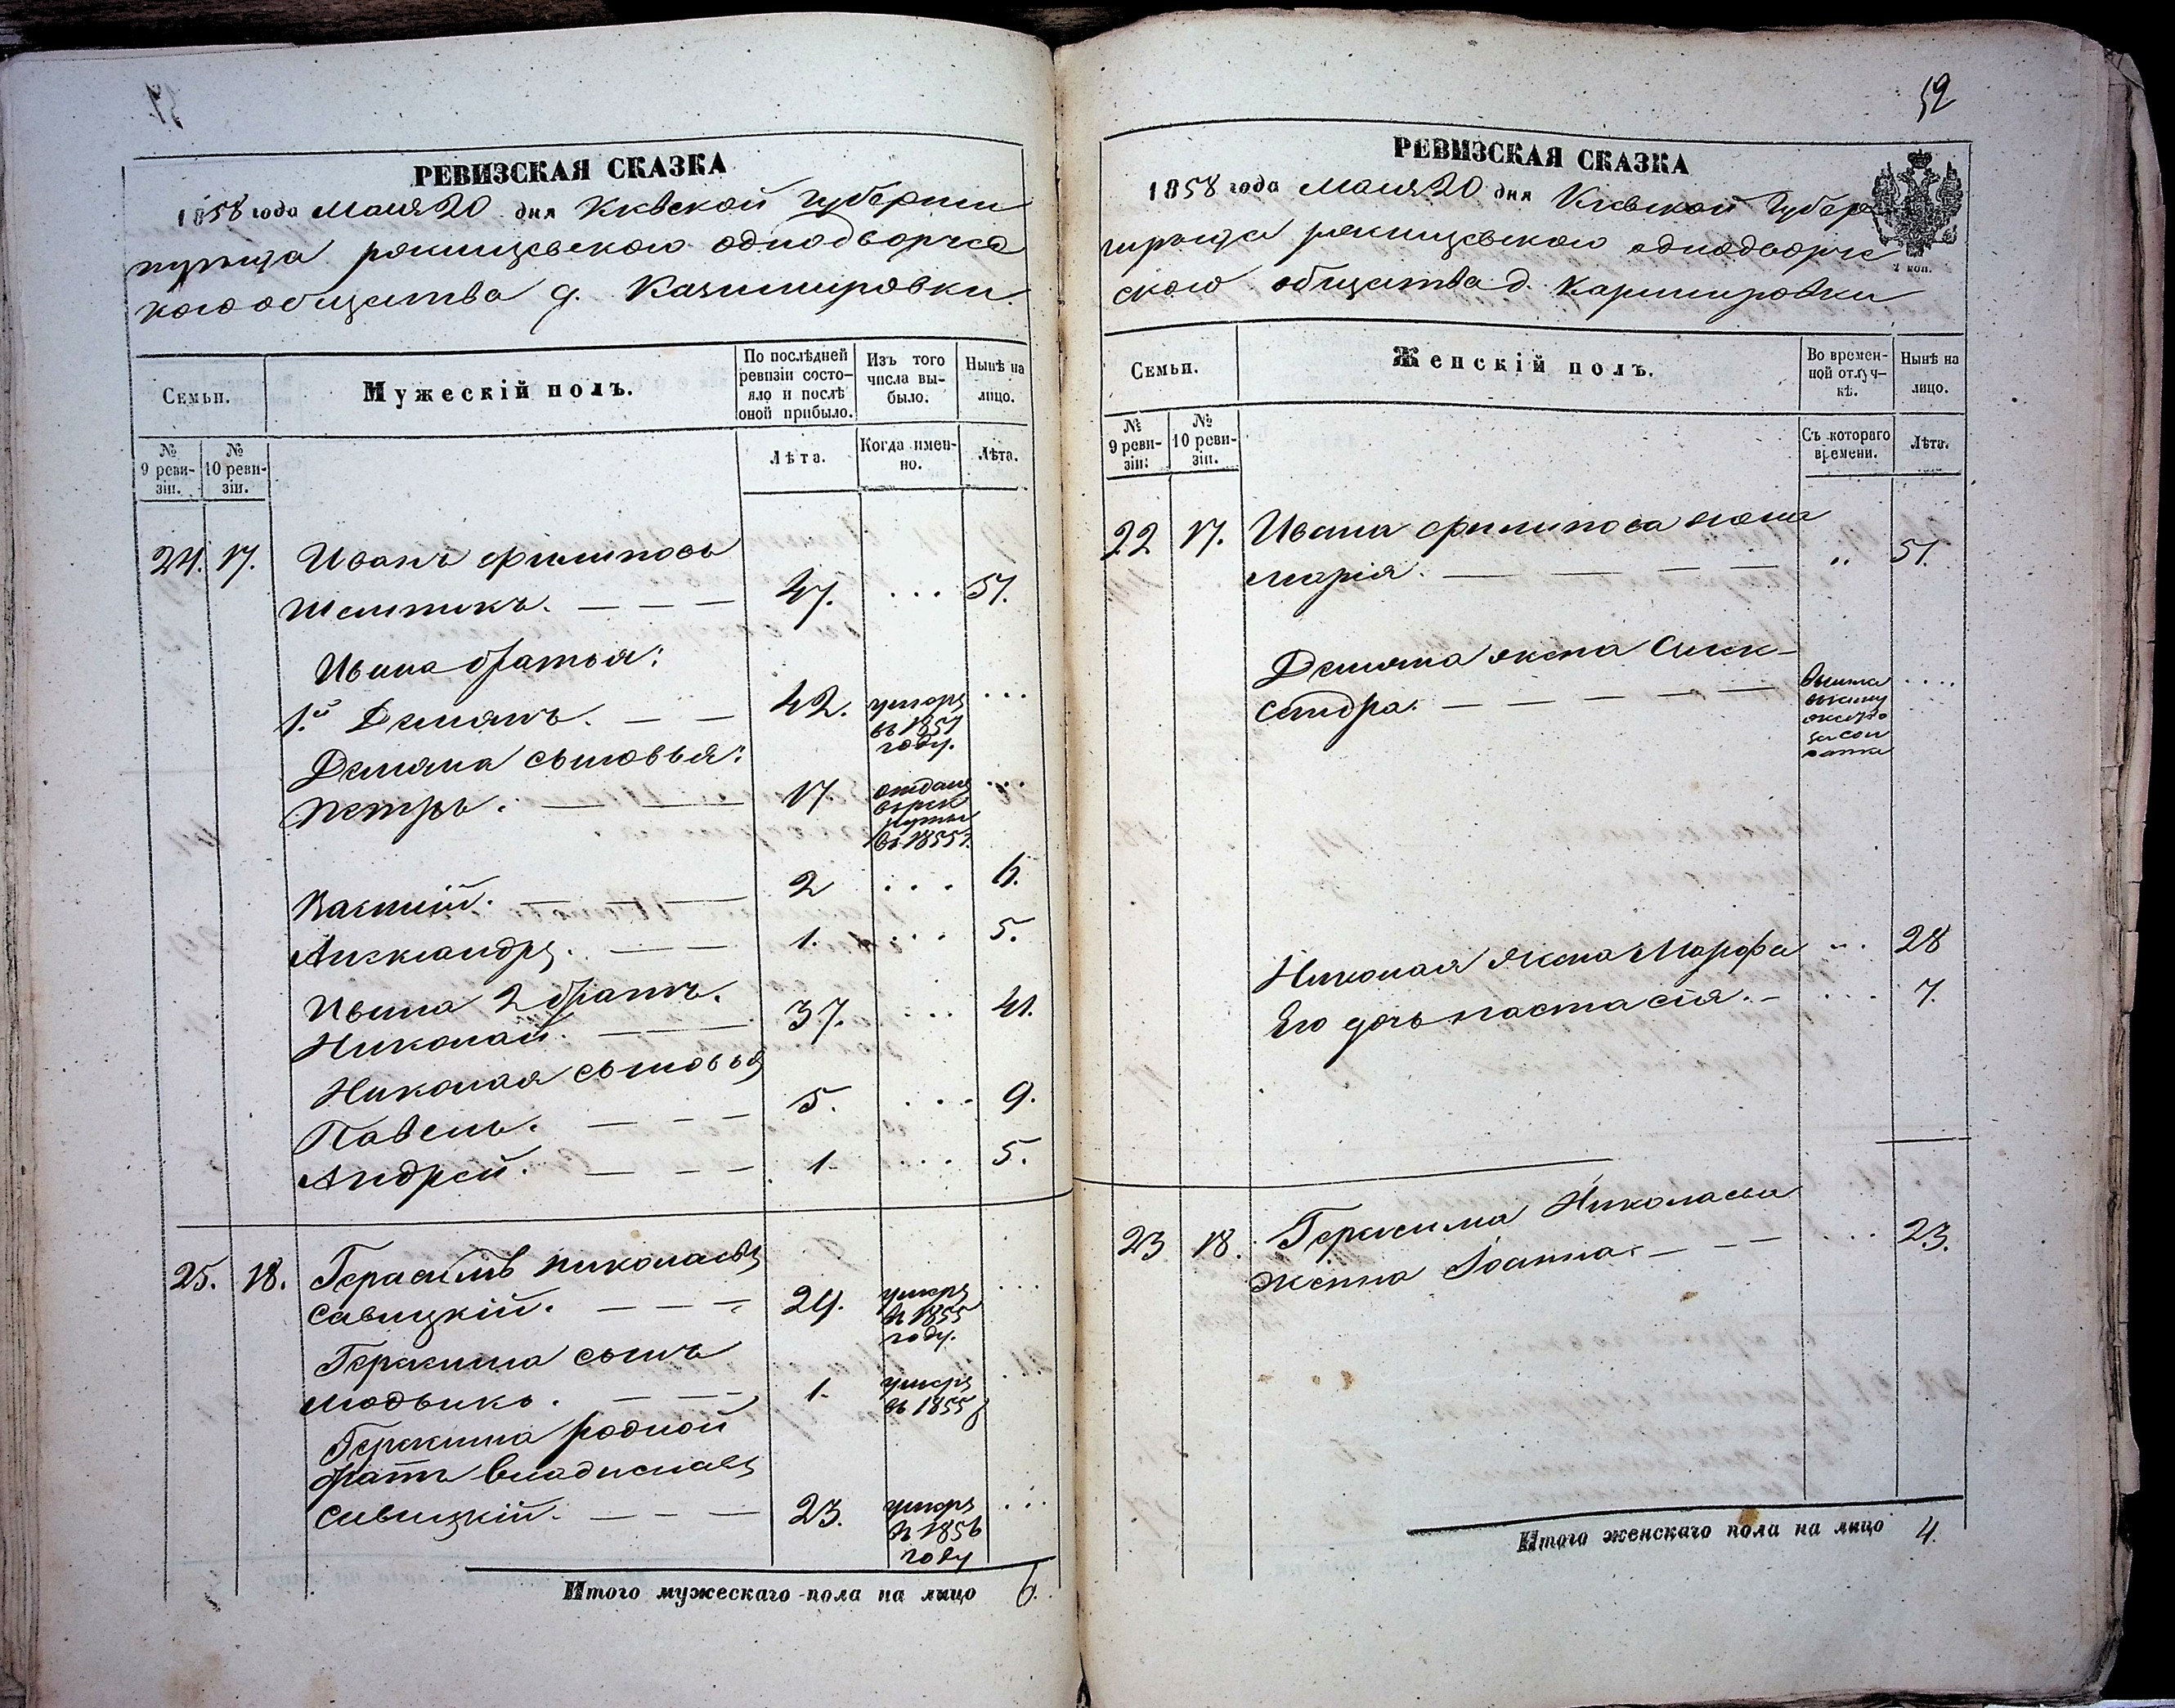 РЕВИЗСКАЯ СКАЗКА
1858 года Маия 20 дня Кіевской Губерніи
однодворчес
кого общества д. Казимировки.
Семьи.
Мужескій полъ.
По послѣдней ревизіи состояло и послѣ оной прибыло.
Изъ того числа выбыло.
Нынѣ на лицо.
№ 9 ревизіи.
№ 10 ревизіи.
Лѣта.
Когда именно.
Лѣта.
24. 17. Иванъ Филиповъ
47. ... 51.
Ивана братья:
1.й Демянъ. 42. умеръ ...
въ 1857
году.
Демяна сыновья:
Петръ. 17. отданъ ...
въ рек
руты
въ 1855г.
Василій. 2 ... 6.
Александръ. 1. ... 5.
Ивана 2 братъ.
Николай. 37. ... 41.
Николая сыновья
Павелъ. 5. ... 9.
Андрей. 1. ... 5.
25. 18. Герасимъ Николаевъ
Савицкій. 24. умеръ ...
въ 1855
году.
Герасима сынъ
Людвикъ. 1. умеръ
въ 1855
Герасима родной
братъ Владиславъ
Савицкій. 23. умеръ ...
въ 1856
году
Итого мужескаго пола на лицо 6.
52
РЕВИЗСКАЯ СКАЗКА
1858 года Маия 20 дня Кіевской Губер
однодворче
ского общества д. Казимировки
Семьи.
Женскій полъ.
Во временной отлучкѣ.
Нынѣ на лицо.
№ 9 ревизіи.
№ 10 ревизіи.
Съ котораго времени.
Лѣта.
22 17. Ивана Филипова жена
Марія. " 51.
Демяна жена Алек-
сандра. вышла ....
замуж
Николая жена Марфа ... 28
Его дочь Настасія. ... 7.
23 18. Герасима Николаева
жена Іоанна. ... 23.
Итого женскаго пола на лицо 4.